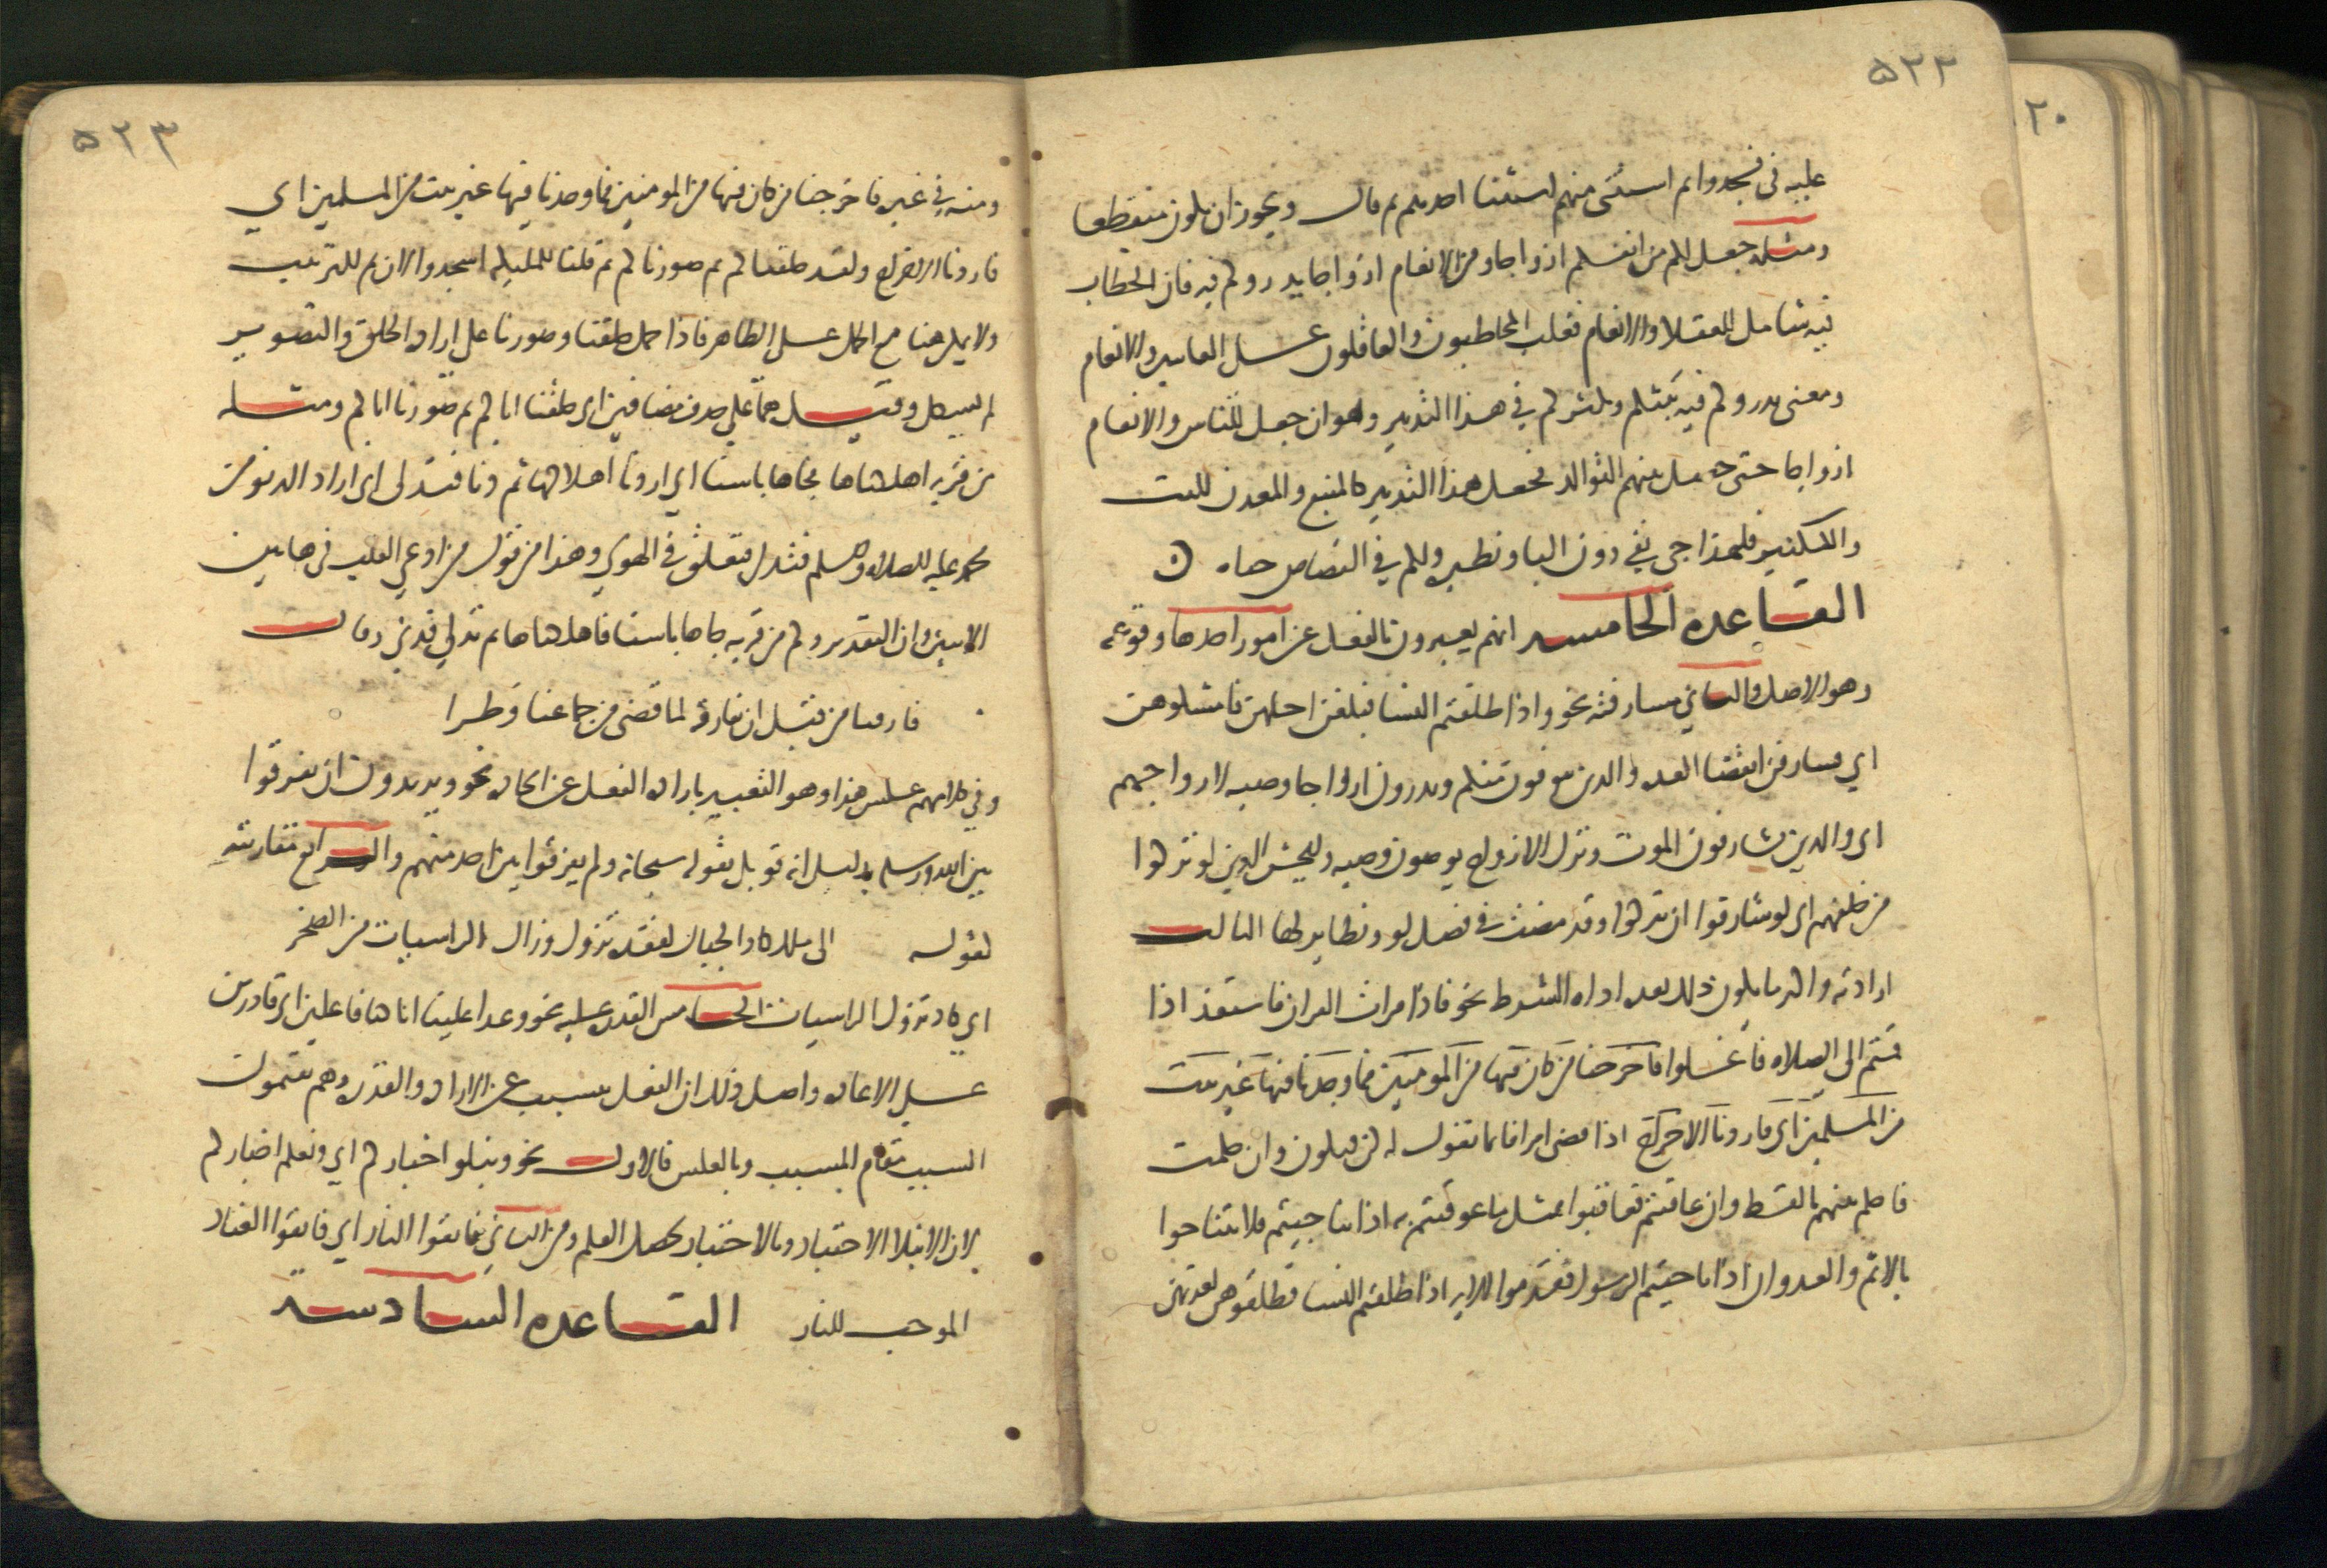 ٥٢٢
عليه في فسجدوا ثم استثنى منهم استثنا احدهم ثم قال ويجوز ان يكون منقطعا
ومثله جعل لكم من انفسكم ازواجا ومن الانعام ازواجا يذروكم فيه فان الخطاب
فيه شامل للعقلا والانعام فغلب المخاطبون والعاقلون على الغايبين والانعام
ومعنى يذروكم فيه يبثكم ويكثركم في هذا التدبير وهو ان جعل للناس والانعام
ازواجا حتى حصل بينهم التوالد فجعل هذا التدبير كالمنبع والمعدن للبث
والتكثير فلهذا جي بفي دون البا ونظيره ولكم في القصاص حياه
القاعده الخامسه انهم يعبرون بالفعل عن امور احدها وقوعه
وهو الاصل والثاني مشارفته نحو واذا طلقتم النسا فبلغن اجلهن فامسكوهن
اي فشارفن انقضا العده والذين يتوفون منكم ويذرون ازواجا وصيه لازواجهم
اي والذين يشارفون الموت وترك الازواج يوصون وصيه وليخش الذين لو تركوا
من خلفهم اي لو شارفوا ان يتركوا وقد مضت في فصل لو ونظايرها الثالث
ارادته واكثر ما يكون ذلك بعد اداه الشرط نحو فاذا قرات القران فاستعذ اذا
قمتم الى الصلاه فاغسلوا فاخرجنا من كان فيها من المومنين فما وجدنا فيها غير بيت
من المسلمين اي فاردنا الاخراج اذا قضى امرا فانما يقول له كن فيكون وان حكمت
فاحكم بينهم بالقسط وان عاقبتم فعاقبوا بمثل ما عوقبتم به اذا تناجيتم فلا تتناجوا
بالاثم والعدوان اذا ناجيتم الرسول فقدموا الايه اذا طلقتم النسا فطلقوهن لعدتهن
٥٢٣
ومنه في غيره فاخرجنا من كان فيها من المومنين فما وجدنا فيها غير بيت من المسلمين اي
فاردنا الاخراج ولقد خلقناكم ثم صورناكم ثم قلنا للمليكه اسجدوا لان ثم للترتيب
ولا يمكن هنا مع الحمل على الظاهر فاذا حمل خلقنا وصورنا على اراده الخلق والتصوير
لم يشكل وقيل هما على حذف مضافين اي خلقنا اباكم ثم صورنا اباكم ومثله
من قريه اهلكناها فجاها باسنا اي اردنا اهلاكها ثم دنا فتدلى اي اراد الدنو من
محمد عليه الصلاه والسلام فتدلى فتعلق في الهوي وهذا من قول من ادعي القلب في هاتين
الايتين وان التقدير وكم من قريه جاها باسنا فاهلكناها ثم تدلى فدني وقال
فارقنا من قبل ان نفارقه لما قضى من جماعنا وطرا
وفي كلامهم عكس هذا وهو التعبير باراده الفعل عن ايجاده نحو ويريدون ان يفرقوا
بين الله ورسله بدليل انه قوبل بقوله سبحانه ولم يفرقوا بين احد منهم والرابع مقاربته
كقوله الى ملك كاد الجبال لفقده تزول وزال الراسيات من الصخر
اي كاد تزول الراسيات الخامس القدره عليه نحو وعدا علينا انا كنا فاعلين اي قادرين
على الاعاده واصل ذلك ان الفعل يتسبب عن الاراده والقدره وهم يقيمون
السبب مقام المسبب وبالعكس فالاول نحو ونبلو اخباركم اي ونعلم اخباركم
لان الابتلا الاختبار وبالاختبار يحصل العلم ومن الثاني فاتقوا النار اي فاتقوا العناد
الموجب للنار القاعده السادسه